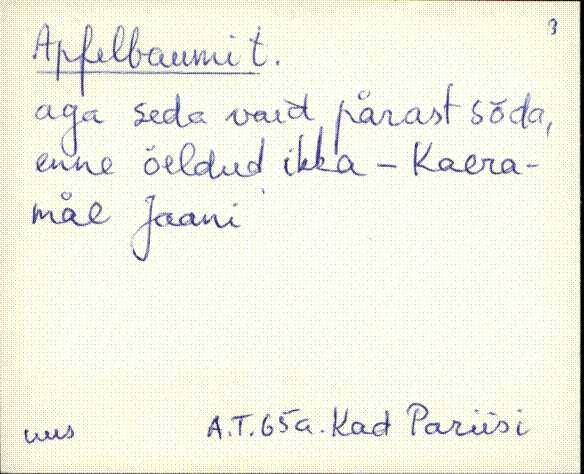 3
Apfelbaumi t.
aga seda vaid pärast sõda,
enne öeldud ikka – Kaera-
mäe Jaani
uus
A.T. 65a. Kad Pariisi